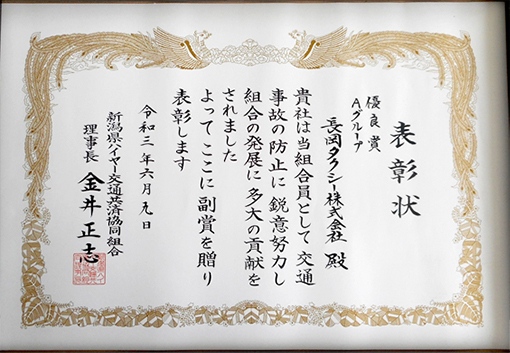 表彰状
優良賞
Aグループ
長岡タクシー株式会社 殿
貴社は当組合員として交通
事故の防止に鋭意努力し
組合の発展に多大の貢献を
されました
よってここに副賞を贈り
表彰します
令和三年六月九日
新潟県ハイヤー交通共済協同組合
理事長 金井正志